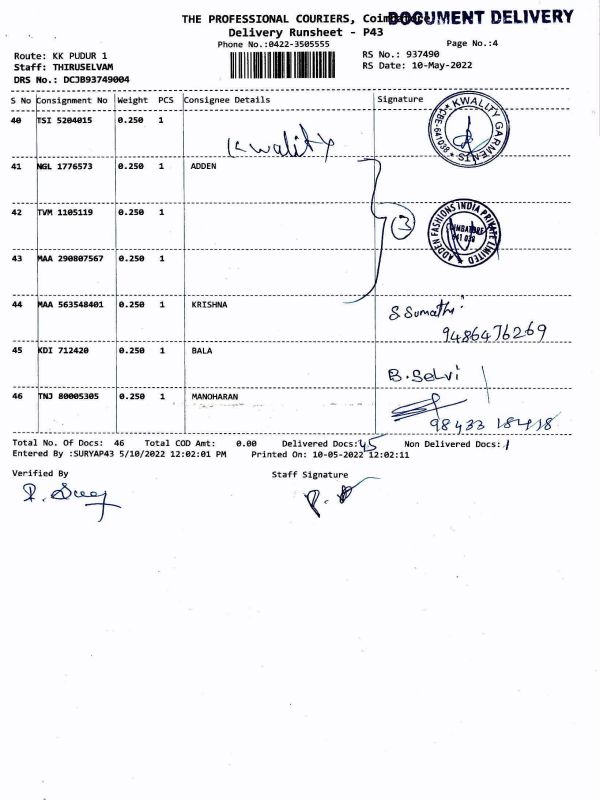 THE PROFESSIONAL COURIERS, Coimbatore
DOCUMENT DELIVERY
Delivery Runsheet - P43
Phone No.:0422-3505555
Page No.:4
Route: KK PUDUR 1
RS No.: 937490
Staff: THIRUSELVAM
RS Date: 10-May-2022
DRS No.: DCJB93749004
S No Consignment No Weight PCS Consignee Details Signature
40 TSI 5204015 0.250 1
Kwality
KWALITY GARMENTS CBE-641038
41 NGL 1776573 0.250 1 ADDEN
42 TVM 1105119 0.250 1
3
ADDEN FASHIONS INDIA PRIVATE LIMITED COIMBATORE 641 038
43 MAA 290807567 0.250 1
44 MAA 563548401 0.250 1 KRISHNA
S Sumathi
9486476269
45 KDI 712420 0.250 1 BALA
B.Selvi
46 TNJ 80005305 0.250 1 MANOHARAN
98433 18418
Total No. Of Docs: 46 Total COD Amt: 0.00 Delivered Docs: 45 Non Delivered Docs: 1
Entered By :SURYAP43 5/10/2022 12:02:01 PM Printed On: 10-05-2022 12:02:11
Verified By
Staff Signature